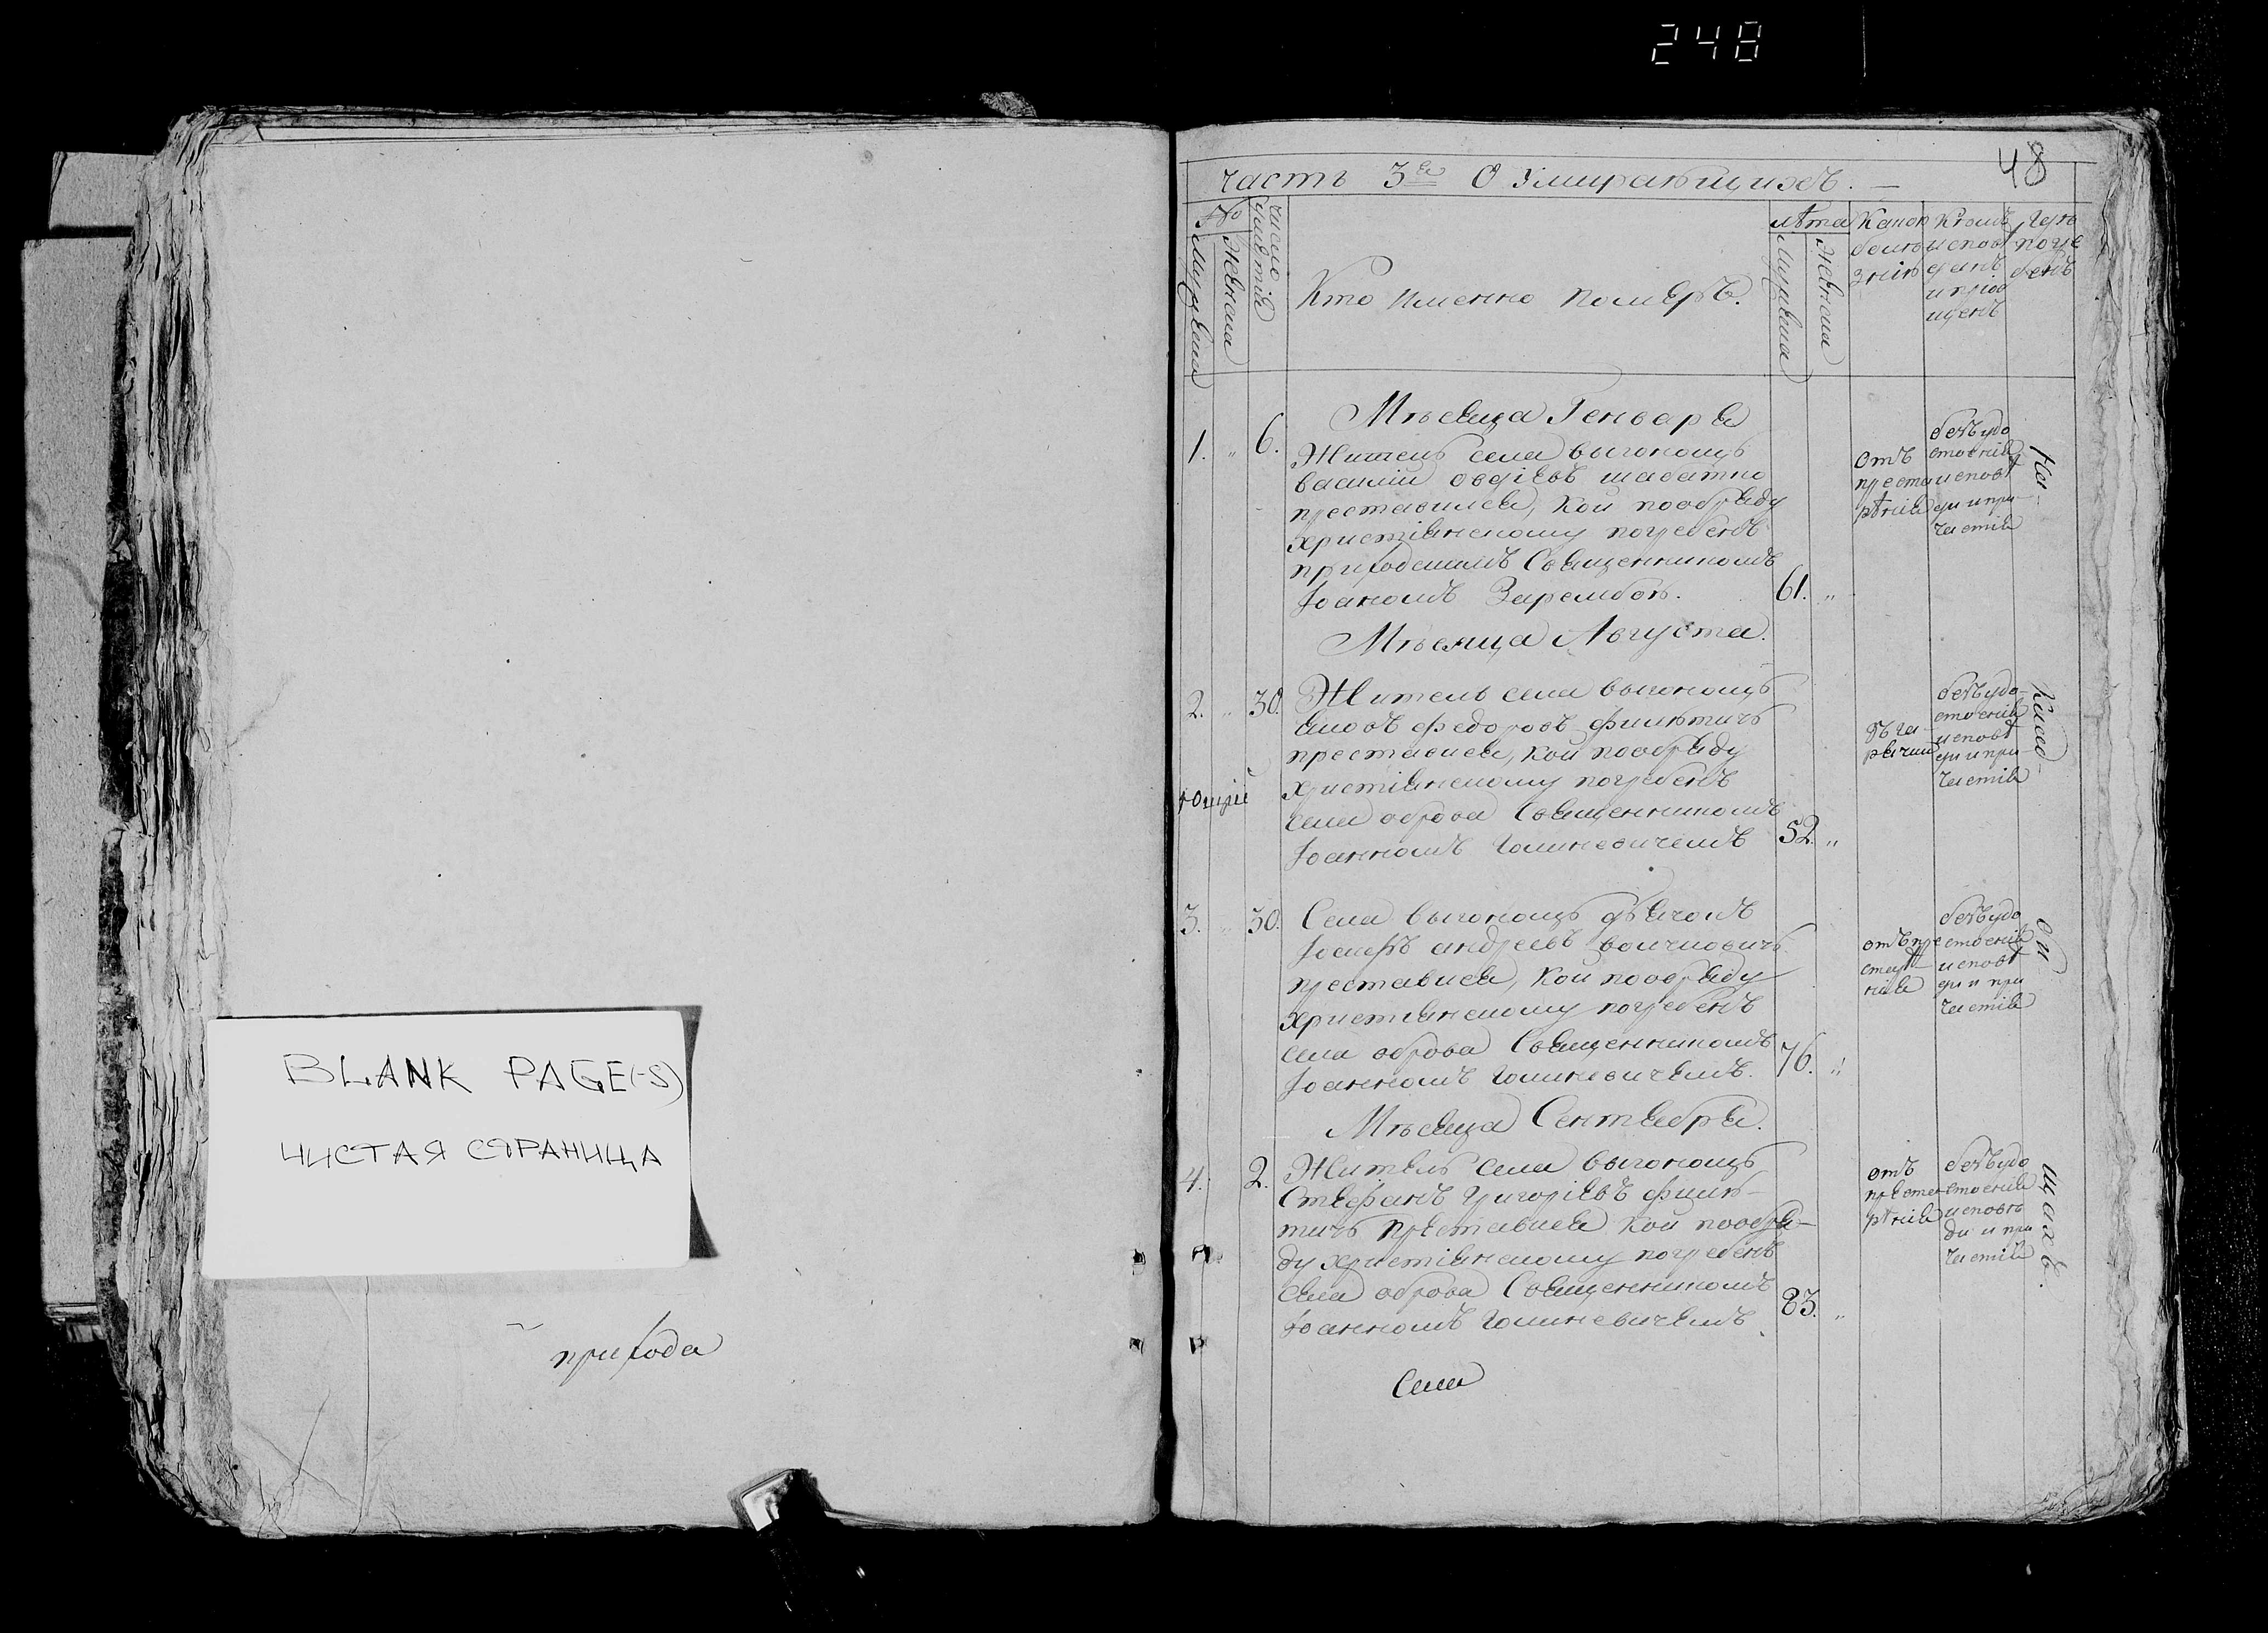 248
BLANK PAGE(-S)
ЧИСТАЯ СТРАНИЦА
прихода
48
Часть 3я О Умирающихъ.
№
Мужеска
Женска
Число умертвія
Кто именно померъ.
Лѣта
Мужеска
Женска
Какою
болѣ
знію
Кѣмъ
исповѣ
данъ
и прiоб
щенъ
Где
погре
бенъ
Мѣсяца Генваря
1. " 6.
Житель села выгонощъ
василій овдіевъ
преставился, кой пообряду
христіянскому погребенъ
приходскимъ Священникомъ
Іоаномъ Зарембою.
61. "
Отъ
преста
рѣнія
безъудо
стоенія
исповѣ
ди и при-
частія
На-
Мѣсяца Августа.
2. " 30.
Житель села выгонощъ
яковъ федоровъ филютичъ
преставися, кой пообряду
христіянскому погребенъ
села оброва Священникомъ
Іоанномъ Голиневичемъ
52. "
зъ га
рячки
безъудо-
стоенія
исповѣ
ди и при
частія
Клад-
3. " 30.
Села выгонощъ дьячокъ
Іосифъ андреевъ войчиовичъ
преставися, кой пообряду
христіянскому погребенъ
села оброва Священникомъ
Іоанномъ Голиневичемъ.
76. "
отъпре
старѣ
нія
безъудо
стоенія
исповѣ
ди и при
частія
би
Мѣсяца Сентября.
4. 2.
Житель села выгонощъ
Стефанъ Григоріевъ филю-
тичъ преставися кой пообря-
ду христіянскому погребенъ
села оброва Священникомъ
Іоанномъ Голиневичемъ
83. "
отъ
преста
рѣнія
безъудо
стоенія
исповѣ
ди и при
частія
щахъ.
Села